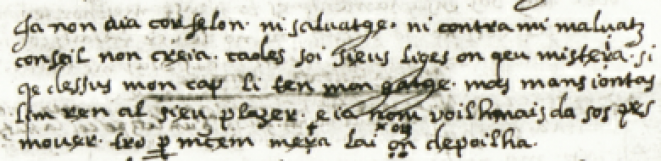 Ja non aia cor felon · ni salvatge · ni contra mi malvatz
conseil non creia · cades soi sieus liges on qeu mistera · si
qe dessus mon cap li ten mon gatge · mas mans iontas
lim ren al sieu plazer · e ia nom voilh mais da sos pes
mover · tro p merce mera lai on depoilha ·